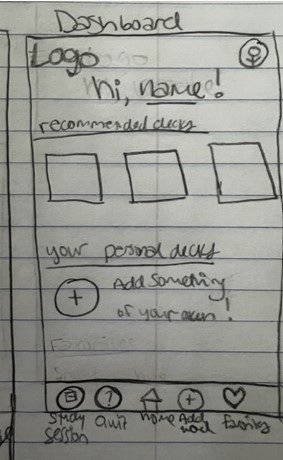 Dashboard
Logo
hi, name!
recommended decks
your personal decks
Add something
of your own!
Study
session
Quiz
home
Add